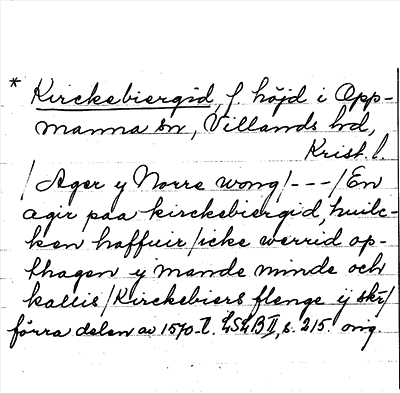 * Kirckebiergid, f. höjd i Opp-
manna sn, Villands hd,
Krist. l.
/Ager y Norre wong/---/En
agir paa kirckebiergid, huilc-
ken haffuir/icke werrid op-
thagen y mande minde och
kallis/Kirckebiers flenge y skr/
förra delen av 1570-t. LSLB II, s. 215. orig.